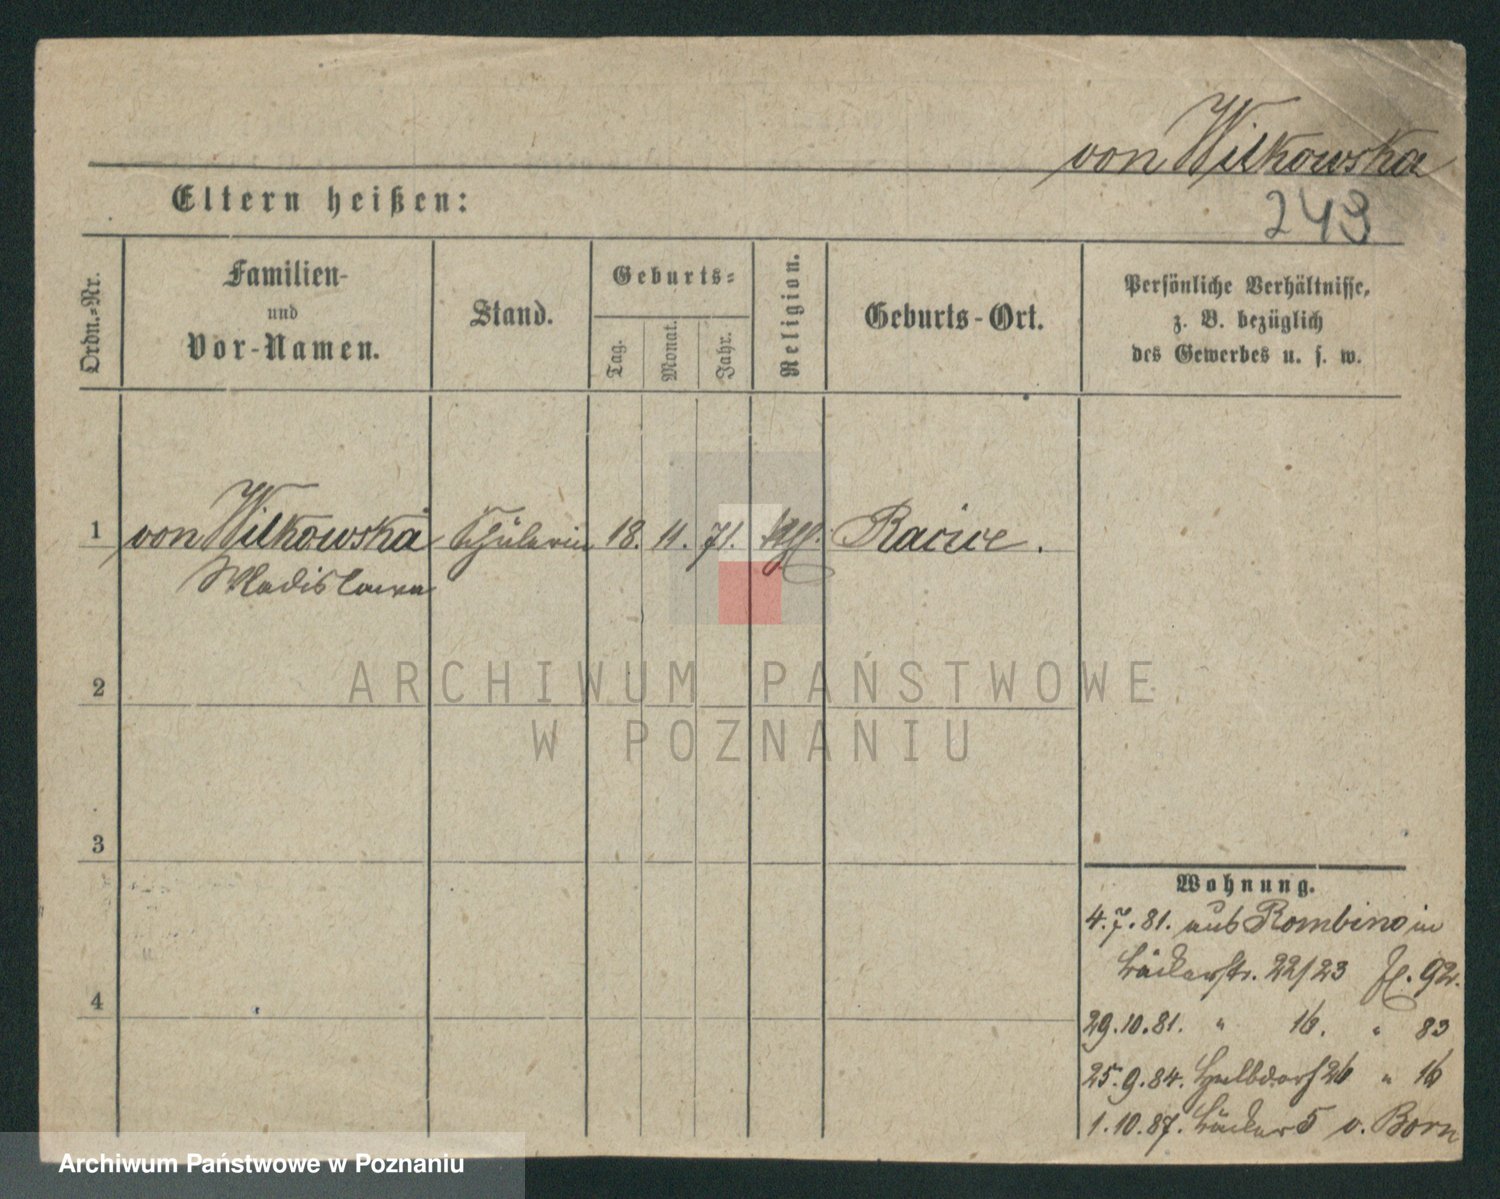 von Wilkowska
243
Eltern heißen:
Ordn.-Nr.
Familien-
und
Vor-Namen.
Stand.
Geburts-
Tag.
Monat.
Jahr.
Religion.
Geburts-Ort.
Persönliche Verhältnisse,
z. B. bezüglich
des Gewerbes u. s. w.
1 von Wilkowska Schülerin 18. 11. 71. Racice.
Wladislawa
2
ARCHIWUM PAŃSTWOWE
W POZNANIU
3
4
Wohnung.
4.7.81. aus Rombino in
Bäckerstr. 22/23 92.
29.10.81. " 16. " 83
25.9.84. Halbdorf 26 " 16
1.10.87. Bäcker 5 v. Born
Archiwum Państwowe w Poznaniu